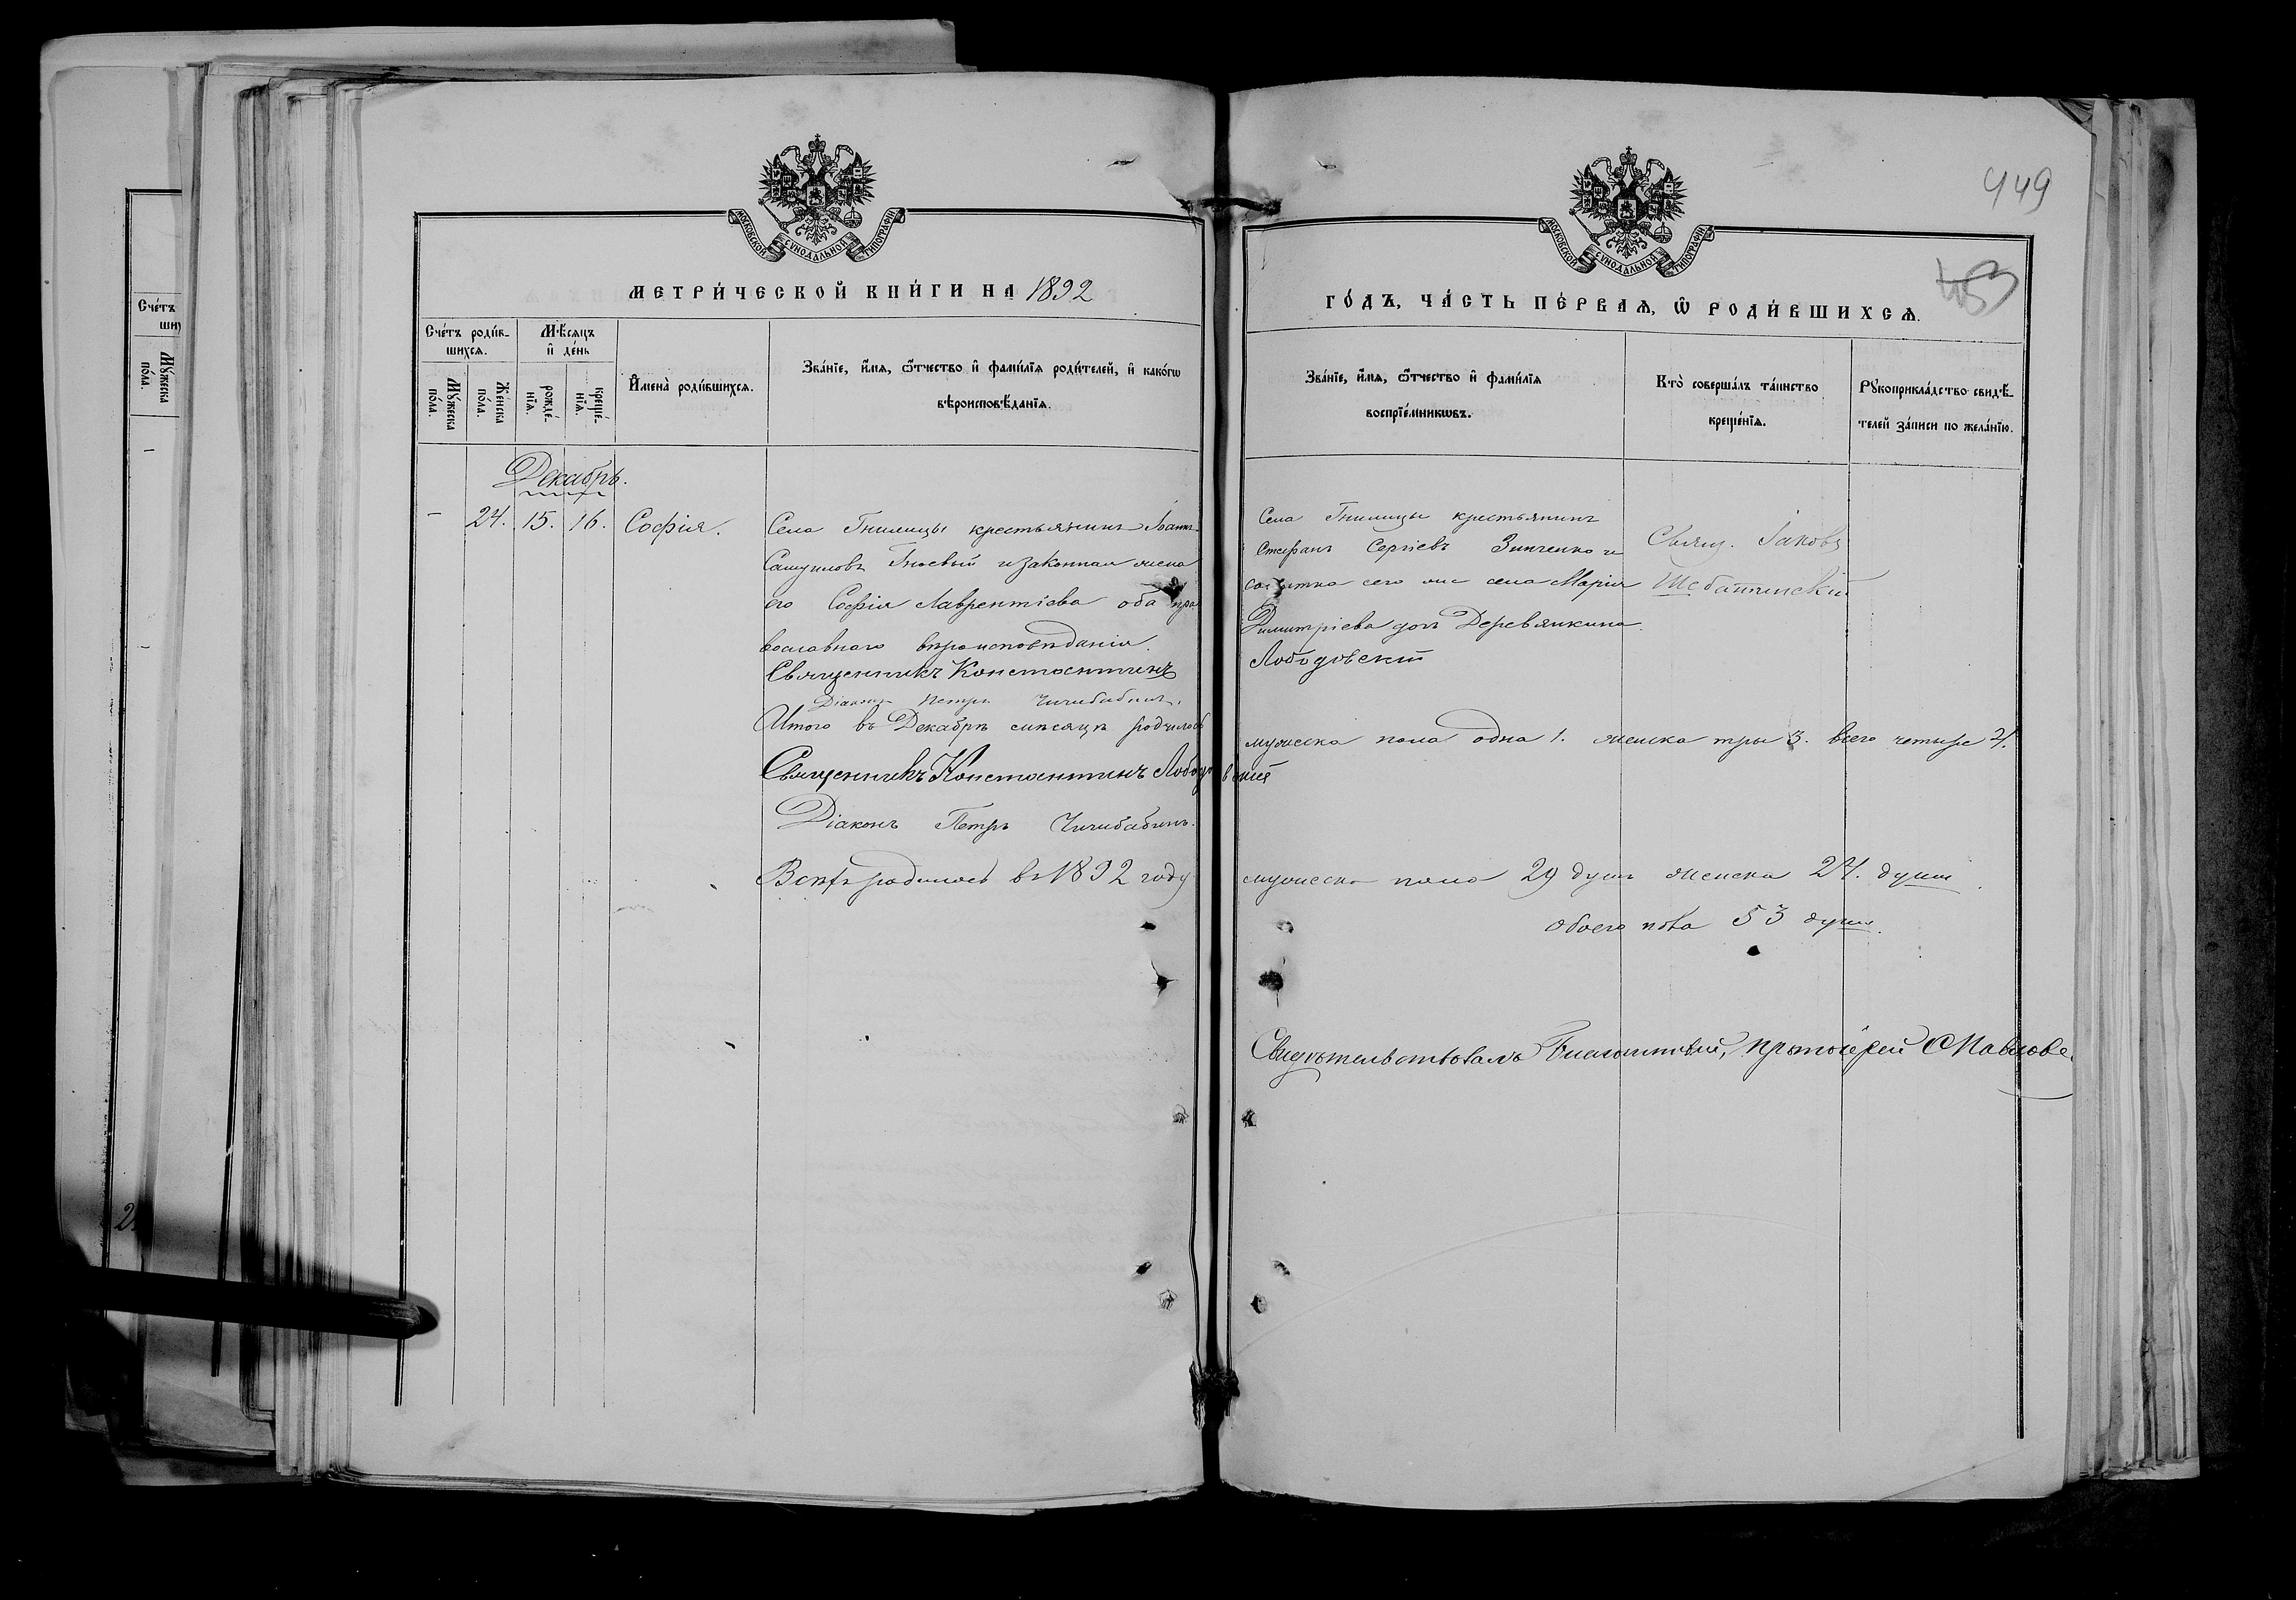 449
МОСКОВСКОЙ СѴНОДАЛЬНОЙ ТИПОГРАФІИ
МЕТРИ́ЧЕСКОЙ КНИ́ГИ НА 1892
Сче́тъ роди́в-
шихсѧ.
Мѣ́сѧцъ
и҆ де́нь
Мꙋ́жеска
по́ла.
Же́нска
по́ла.
рожде́-
нїѧ.
креще́-
нїѧ.
И҆мена̀ роди́вшихсѧ.
Зва́нїе, и҆́мѧ, ѻ҆́тчество и҆ фами́лїѧ роди́телей, и҆ како́гѡ
вѣроисповѣ́данїѧ.
Декабрь.
- 24. 15. 16. Софія.
Села Гнилицы крестьянинъ Іоаннъ
Самуиловъ Гноевый и законная жена
его Софія Лаврентіева оба пра
вославнаго вѣроисповѣданія.
Священникъ Константинъ
Діаконъ Петръ Чичибабинъ.
Итого въ Декабрѣ мѣсяцѣ родилось
Священникъ Константинъ Лободовскій
Діаконъ Петръ Чичибабинъ.
Всѣхъ родилось въ 1892 году
МОСКОВСКОЙ СѴНОДАЛЬНОЙ ТИПОГРАФІИ
ГО́ДЪ, ЧА́СТЬ ПЕ́РВАѦ, Ѡ҆ РОДИ́ВШИХСѦ.
Зва́нїе, и҆́мѧ, ѻ҆́тчество и҆ фами́лїѧ
воспрїе́мникѡвъ.
Кто̀ соверша́лъ та́инство
креще́нїѧ.
Рꙋкоприкла́дство свидѣ́-
телей за́писи по жела́нїю.
Села Гнилицы крестьянинъ
Стефанъ Сергіевъ Зинченко и
сего же села Марія
Димитріева дочь Деревянкина.
Лободовскій
Свящ. Іаковъ
мужеска пола одна 1. женска три 3. всего четыре 4.
мужеска пола 29 душъ женска 24. душъ
обоего пола 53 душъ.
Свидѣтельствовалъ Благочинный, протоіерей
Сче́тъ
Мꙋ́жеска
по́ла.